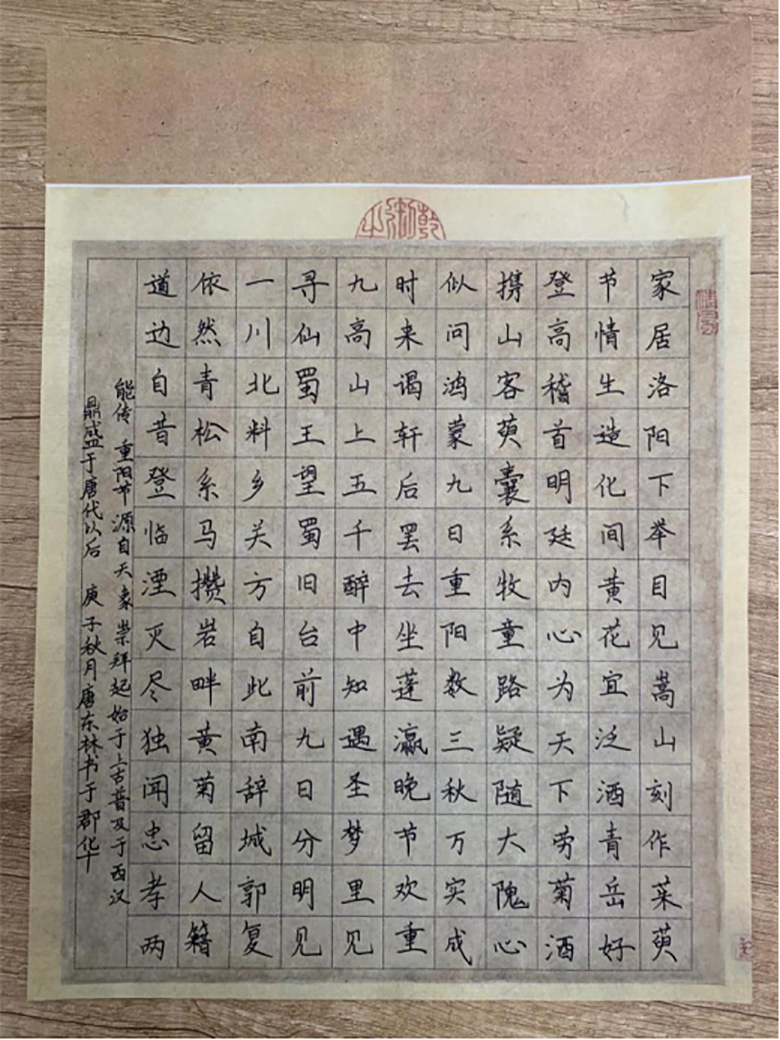 家居洛阳下举目见嵩山刻作茱萸
节情生造化间黄花宜泛酒青岳好
登高稽首明廷内心为天下劳菊酒
携山客萸囊系牧童路疑随大隗心
似问鸿蒙九日重阳数三秋万实成
时来谒轩后罢去坐蓬瀛晚节欢重
九高山上五千醉中知遇圣梦里见
寻仙蜀王望蜀旧台前九日分明见
一川北料乡关方自此南辞城郭复
依然青松系马攒岩畔黄菊留人籍
道边自昔登临湮灭尽独闻忠孝两
能传 重阳节源自天象崇拜起始于上古普及于西汉
鼎盛于唐代以后 庚子秋月唐东林书于郡华